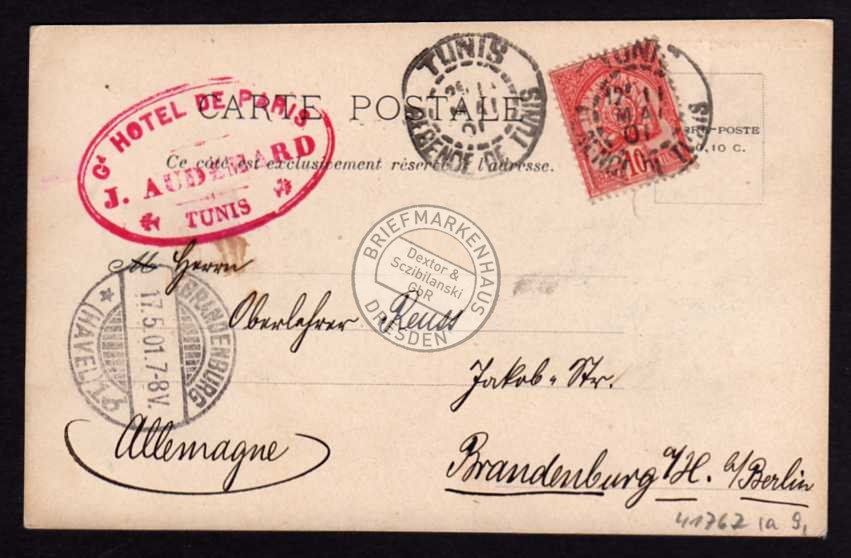 CARTE POSTALE
Ce côté est exclusivement réservé à l'adresse.
Gd HOTEL DE PARIS
J. AUDEMARD
TUNIS
TUNIS
REGENCE DE TUNIS
11
MAI
01
TUNIS
11
MAI
01
REGENCE DE TUNIS
10
TIMBRE-POSTE
0,10 C.
M Herrn
Oberlehrer Reuss
Jakob-Str.
Brandenburg a/H. b/Berlin
Allemagne
BRANDENBURG
17.5.01.7-8V.
(HAVEL) 1
BRIEFMARKENHAUS
Dextor &
Sczibilanski
GbR
DRESDEN
41767 1a 9,